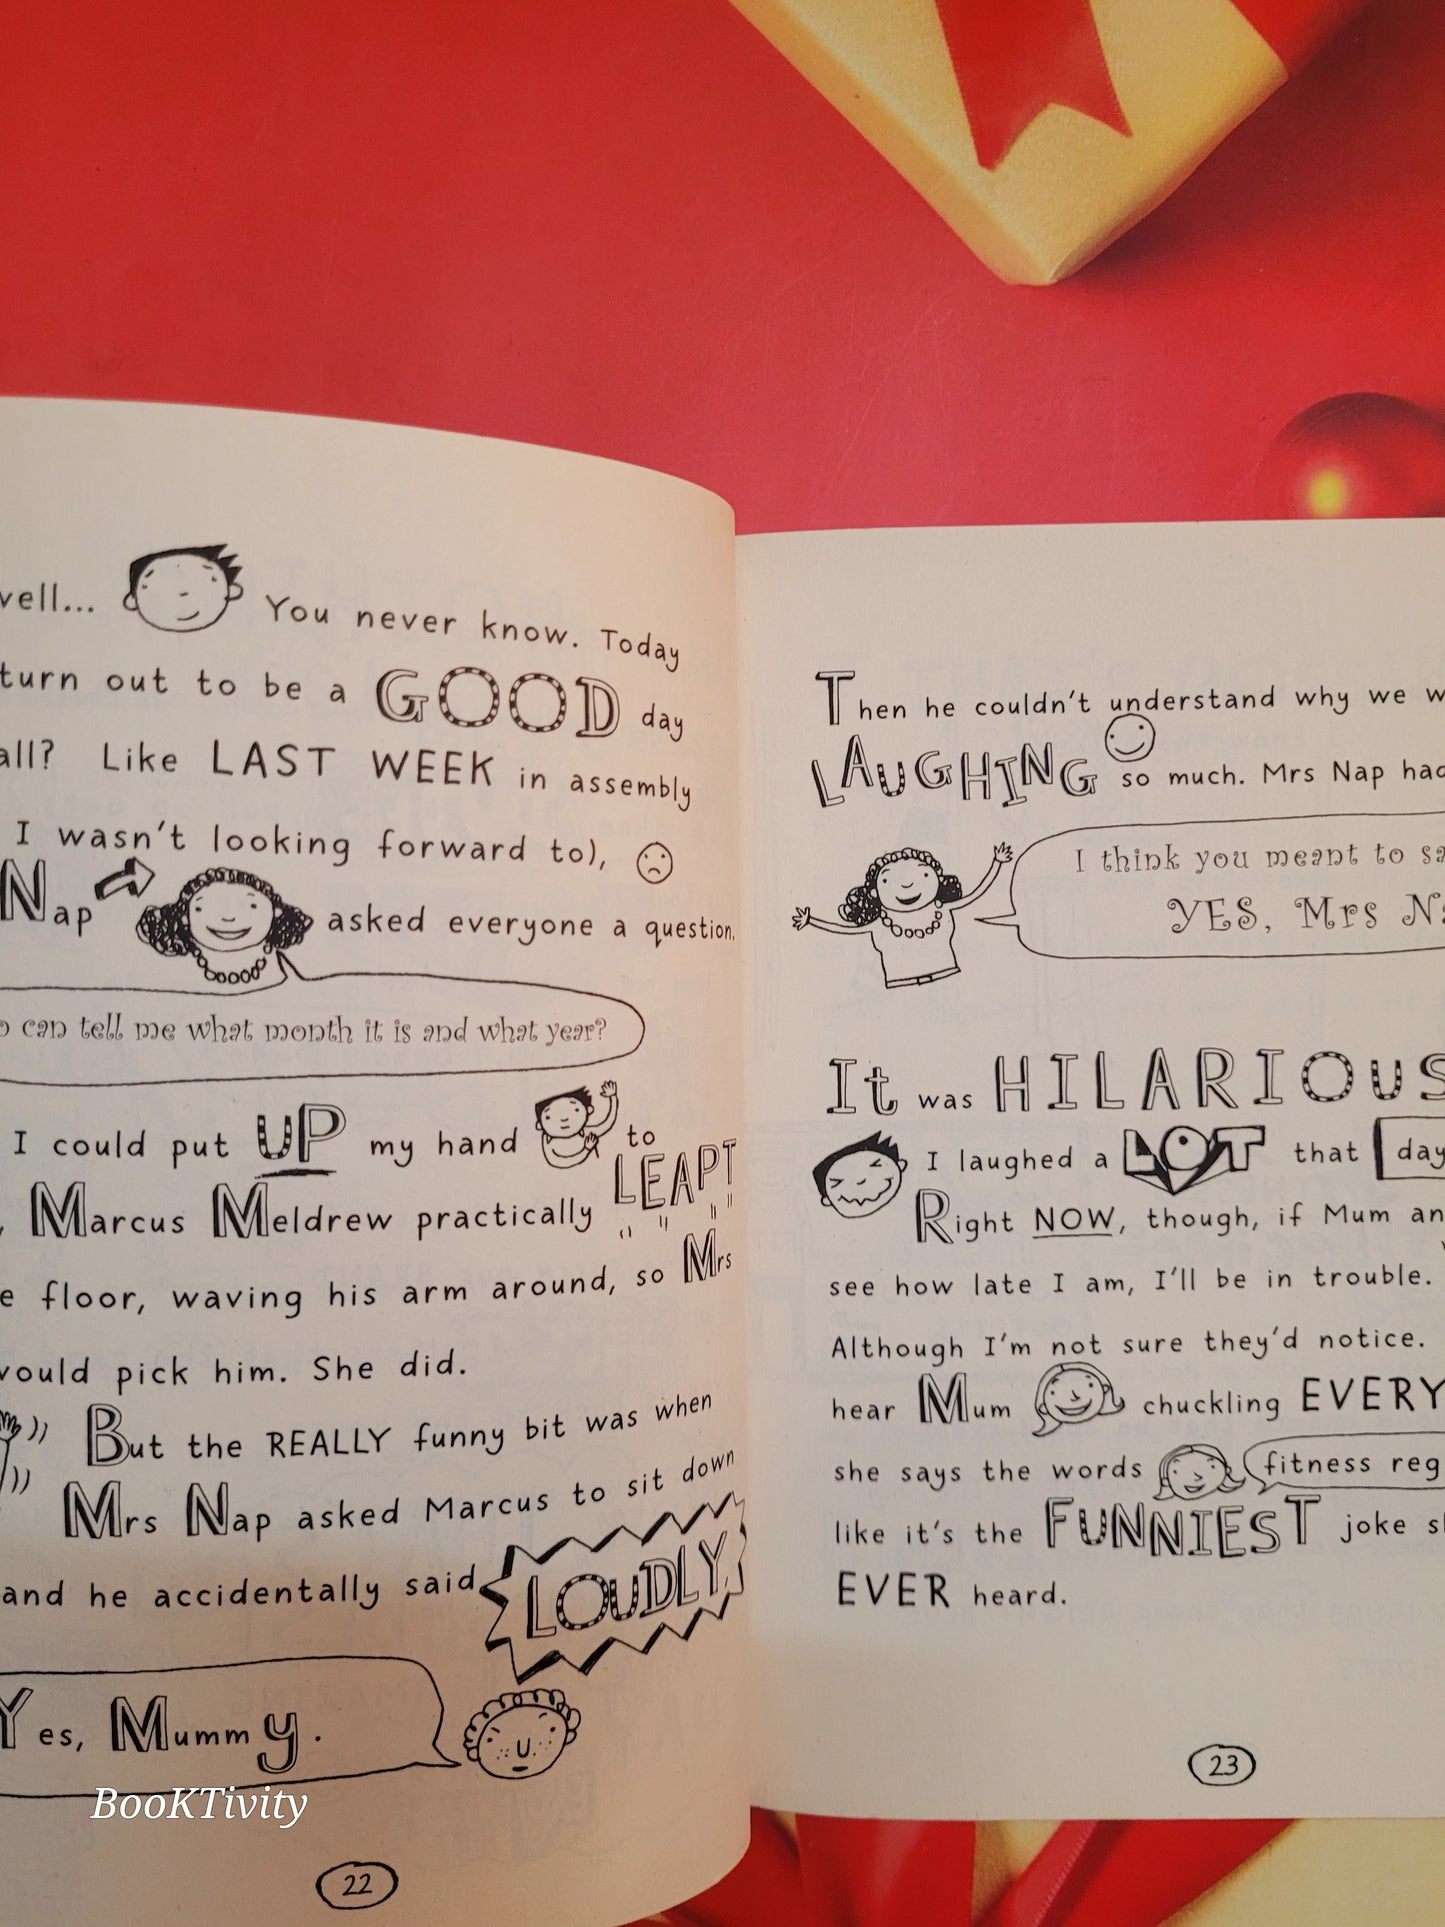 well... You never know. Today
turn out to be a GOOD day
all? Like LAST WEEK in assembly
I wasn't looking forward to),
Nap asked everyone a question.
can tell me what month it is and what year?
I could put UP my hand to
LEAPT
Marcus Meldrew practically
floor, waving his arm around, so Mrs
would pick him. She did.
But the REALLY funny bit was when
Mrs Nap asked Marcus to sit down
and he accidentally said LOUDLY
Yes, Mummy.
BooKTivity
22
Then he couldn't understand why we
LAUGHING so much. Mrs Nap had
I think you meant to
YES, Mrs
It was HILARIOUS
I laughed a LOT that day
Right NOW, though, if Mum
see how late I am, I'll be in trouble.
Although I'm not sure they'd notice.
hear Mum chuckling EVERY
she says the words fitness
like it's the FUNNIEST joke
EVER heard.
23